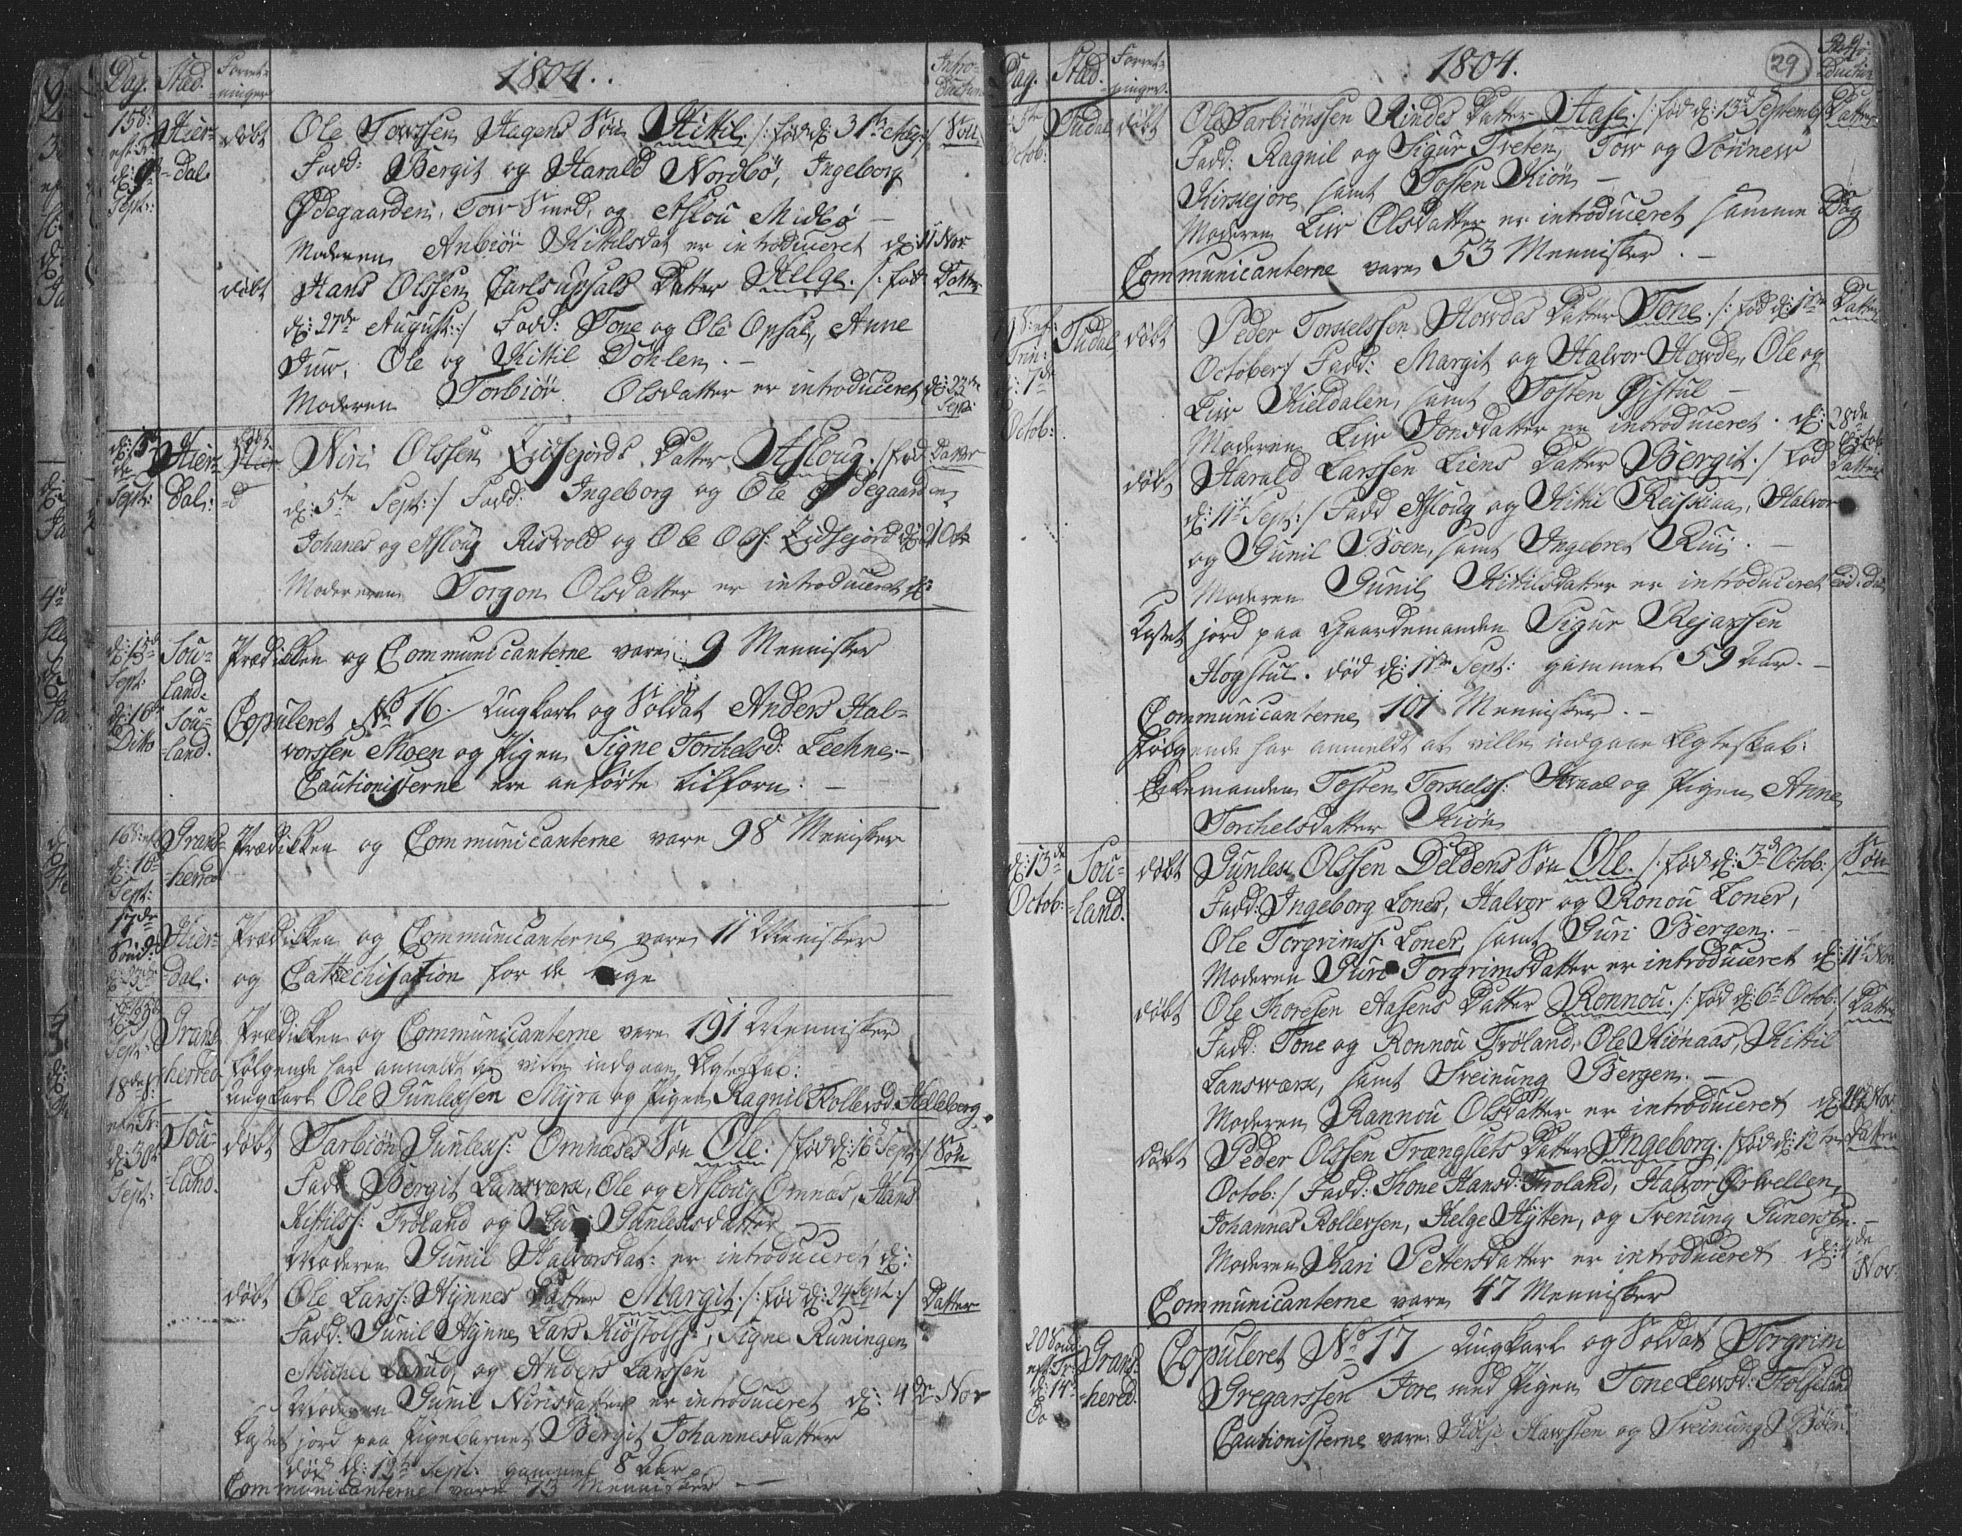 Dag. Stad. Forret-ninger 1804. Intro-duction
15de Hier- døbt Ole Towssen Hagens Søn Kittil. /: fød d: 31te Aug: Søn
d: 9de -dal. Fadd: Bergit og Harald Nordbø, Ingeborg
Sept: Ødegaarden, Tow Smed, og Aslou Midbø —
Moderen Anbiør Kittilsdat er introduceret d: 11 Nov
døbt Hans Olssen Carlsupsals Datter Helge. /: fød Datter
d: 27de August:/ Fadd: Tone og Ole Opsal, Anne
Juw, Ole og Kittil Døhlen. —
Moderen Torbiør Olsdatter er introduceret d: 23de Sept:
Hier- Niri Olssen Eidsfjords Datter Asloug. /: fød Datter
Sept: dal: d: 5te Sept:/ Fadd: Ingeborg og Ole Ødegaarden
Johanes og Asloug Risvold og Ole Ols: Eidsfjord d: 21 Oct
Moderenen Torgon Olsdatter er introduceret d:
d: 15de Sou- Prædikken og Communicanterne vare 9 Mennisker
Sept: land.
d: 16de Sou- Copuleret No 16. / Ungkarl og Soldat Anders Hal-
Ditto land. vorssen Moen og Pigen Signe Torchelsd: Leehne. —
Cautionisterne ere anførte tilforn. —
Grand- Prædikken og Communicanterne vare 98 Menisker
d: 16de herred
Sept:
17de Hier- Prædikken og Communicanterne vare 11 Menisker
d: 23de dal: og Cattechisation for de unge
Grand- Prædikken og Communicanterne vare 191 Mennisker
Sept: herred Følgende har anmeldt at ville indgaae Ægteskab:
18de Ungkarl Ole Gunlekssen Myra og Pigen Ragnil Rollevsd Helleberg.
d: 30te Sou- døbt Tarbiøn Gunleks: Omnæses Søn Ole. /: fød d: 16de Sept:/ Søn
Sept: -land. Fadd: Bergit Lansværk, Ole og Asloug Omnæs, Hans
Kittilss: Frøland og Guri Gunleksdatter —
Moderen Gunil Halvorsdat: er introduceret d:
døbt Ole Larss: Hynnes Datter Margit. /: fød d: 24 Sept:/ Datter
Fadd: Gunil Hynne, Lars Kiøstolfs:, Signe Runingen
Michel Lærud, og Anders Larssen
Moderen Gunil Nirisdatter er introduceret d: 4de Nov
Kastet jord paa Pigebarnet Bergit Johannesdatter
død d: 12te Sept: gammel 8 Aar.
Communicanterne vare 73 Mennisker —
Dag. Stad. Forret-ninger. 1804. 29
Octob: Tudal døbt Ole Tarbiønssen Rindes Datter Aase. /: fød d: 13de September Datter
Fadd: Ragnil og Sigur Tveten, Tow og Sønnew
Kirkejore, samt Tosten Kiøn —
Moderen Liw Olsdatter er introduceret samme Dag
Communicanterne vare 53 Mennisker. —
Tudal døbt Peder Torkelssen Howdes Datter Tone. /: fød d: 1te Datter
d: 7de October:/ Fadd: Margit og Halvor Howde, Ole og
Octob: Liw Kieldalen, samt Tosten Øistul —
Moderen Liw Jonsdatter er introduceret. d: 28de Octob:
døbt Harald Larssen Liens Datter Bergit. /: fød Datter
d: 11te Sept:/ Fadd Asloug og Kittil Reiskiaa, Halvor
og Gunil Boen, samt Ingebret Rui. —
Moderen Gunil Kittilsdatter er introduceret
Kastet jord paa Gaardemanden Sigur Rejarssen
Hogstul. død d: 11te Sept: gammel 59 Aar. —
Communicanterne 101 Mennisker. —
Følgende har anmeldt at ville indgaae Ægteskab:
Enkemanden Tosten Torkelss: Kraal og Pigen Anne
Torchelsdatter Kiøn
d: 13de Sou- døbt Gunlek Olssen Deldens Søn Ole. /: fød d: 3de Octob:/ Søn
Octob: -land. Fadd: Ingeborg Loner, Halvor og Ronou Loner,
Ole Torgrimss: Loner, samt Guri Bergen. —
Moderen Guri Torgrimsdatter er introduceret d: 11te Nov:
døbt Ole Thoresen Aasens Datter Ronnou. /: fød d: 6te Octob:/ Datter
Fadd: Tone og Ronnou Frøland, Ole Kiønaas, Kittil
Lansværk, samt Sveinung Bergen. —
Moderen Rannou Olsdatter er introduceret d: Nov:
døbt Peder Olssen Trænglets Datter Ingeborg. /: fød d: 12te Datter
Octob:/ Fadd: Thone Hansd: Frøland, Halvor Ørvellen,
Johannes Rollevsen, Helge Hytten, og Svenung Gunersen. —
Moderen Kari Pettersdatter er introduceret d: 4de Nov:
Communicanterne vare 47 Mennisker
Grand- Copuleret No 17 / Ungkarl og Soldat Torgrim
d: 14de herred. Gregarssen Jore med Pigen Tone Lewsd: Folseland
Cautionisterne vare Kølje Hawsten og Sveinung Bøen